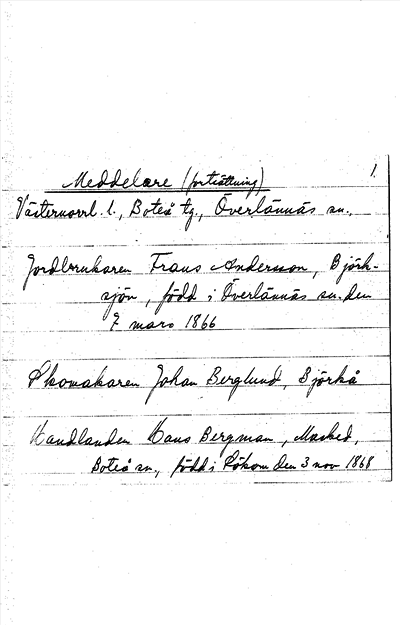 1.
Meddelare (fortsättning)
Västernorrl. l., Boteå tg., Överlännäs sn.,
Jordbrukaren Frans Andersson, Björk-
sjön, född i Överlännäs sn. den
7 mars 1866
Skomakaren Johan Berglund, Björkå
Handlanden Hans Bergman,
Boteå sn., född i den 3 nov 1868